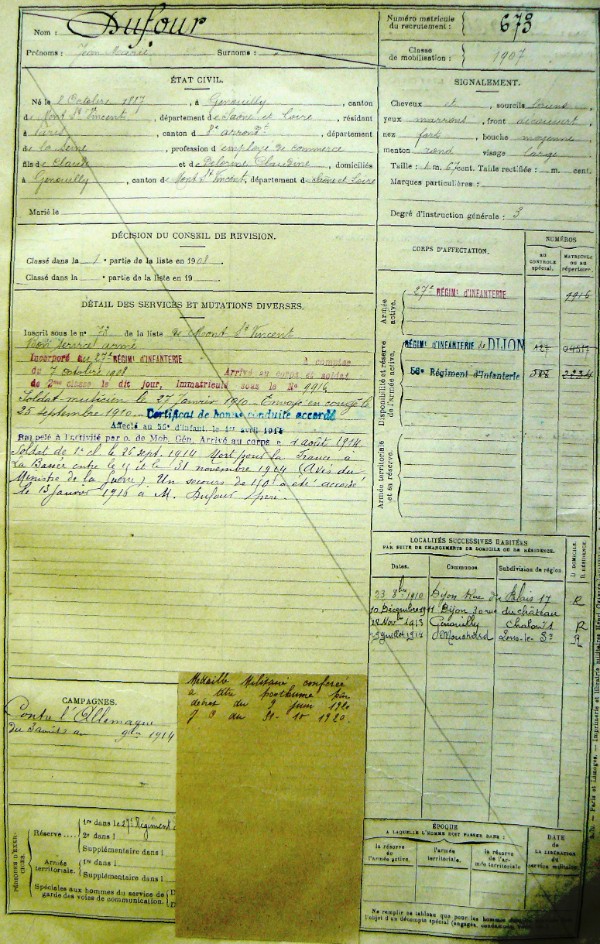 Nom : Dufour
Prénoms : Jean Marie Surnoms :
Numéro matricule du recrutement : 673
Classe de mobilisation : 1907
ÉTAT CIVIL.
Né le 2 Octobre 1887, à Genouilly, canton
de Mont St Vincent, département de Saône et Loire, résidant
à Paris, canton d 8e arrondt, département
de la Seine, profession d'employé de commerce
fils de Claude et de Delorme Claudine, domiciliés
à Genouilly, canton de Mont St Vincent, département de Saône et Loire
Marié le
SIGNALEMENT.
Cheveux et, sourcils bruns
yeux marrons, front découvert
nez fort, bouche moyenne
menton rond visage large
Taille : 1 m. 67 cent. Taille rectifiée : m. cent.
Marques particulières :
Degré d'instruction générale : 3
DÉCISION DU CONSEIL DE REVISION.
Classé dans la 1e partie de la liste en 1908
Classé dans la e partie de la liste en 19
DÉTAIL DES SERVICES ET MUTATIONS DIVERSES.
Inscrit sous le n° 78 de la liste de Mont St Vincent
Incorporé au 27e RÉGIMENT D'INFANTERIE à compter
du 7 octobre 1908 Arrivé au corps et soldat
de 2me classe le dit jour, Immatriculé sous le N° 9914
Soldat-musicien le 27 Janvier 1910 - Envoyé en congé le
25 septembre 1910 - Certificat de bonne conduite accordé
Affecté au 56e d'Infant. le 1er avril 1914
Rappelé à l'activité par o. de Mob. Gén. Arrivé au corps le août 1914
Soldat de 1e cl. le 26 sept. 1914 Mort pour la France à
La Bassée entre le et le 31 novembre 1914 (Avis du
Ministre de la Guerre) Un secours de 150 a été accordé
le 13 janvier 1916 à M. Dufour père.
CORPS D'AFFECTATION.
NUMÉROS
AU CONTRÔLE spécial.
MATRICULE OU AU répertoire.
Armée active.
27e RÉGIMt D'INFANTERIE 9914
Disponibilité et réserve de l'armée active.
RÉGIMt D'INFANTERIE de DIJON
56e Régiment d'Infanterie
Armée territoriale et sa réserve.
LOCALITÉS SUCCESSIVES HABITÉES
PAR SUITE DE CHANGEMENTS DE DOMICILE OU DE RÉSIDENCE.
Dates. Communes. Subdivision de région. D. DOMICILE R. RÉSIDENCE
23 8bre 1910 Dijon rue du Palais 17 R
10 Décembre 1911 Dijon 30 rue du château
14 Novbre 1913 Genouilly Chalon R
5 juillet 1914 d'Mouchard Lons-le-Sr R
CAMPAGNES.
Contre l'Allemagne
du 3 août au 9bre 1914
Médaille Militaire conférée
à titre posthume par
décret du 9 juin 1920
J O du 31-10 1920.
PÉRIODES D'EXERCICES.
Réserve 1re dans le 27e Régiment
2e dans l
Supplémentaire dans l
Armée territoriale. 1re dans l
Supplémentaire dans l
Spéciales aux hommes du service de garde des voies de communication.
ÉPOQUE
À LAQUELLE L'HOMME DOIT PASSER DANS :
la réserve de l'armée active.
l'armée territoriale.
la réserve de l'armée territoriale
DATE DE LA LIBÉRATION du service militaire.